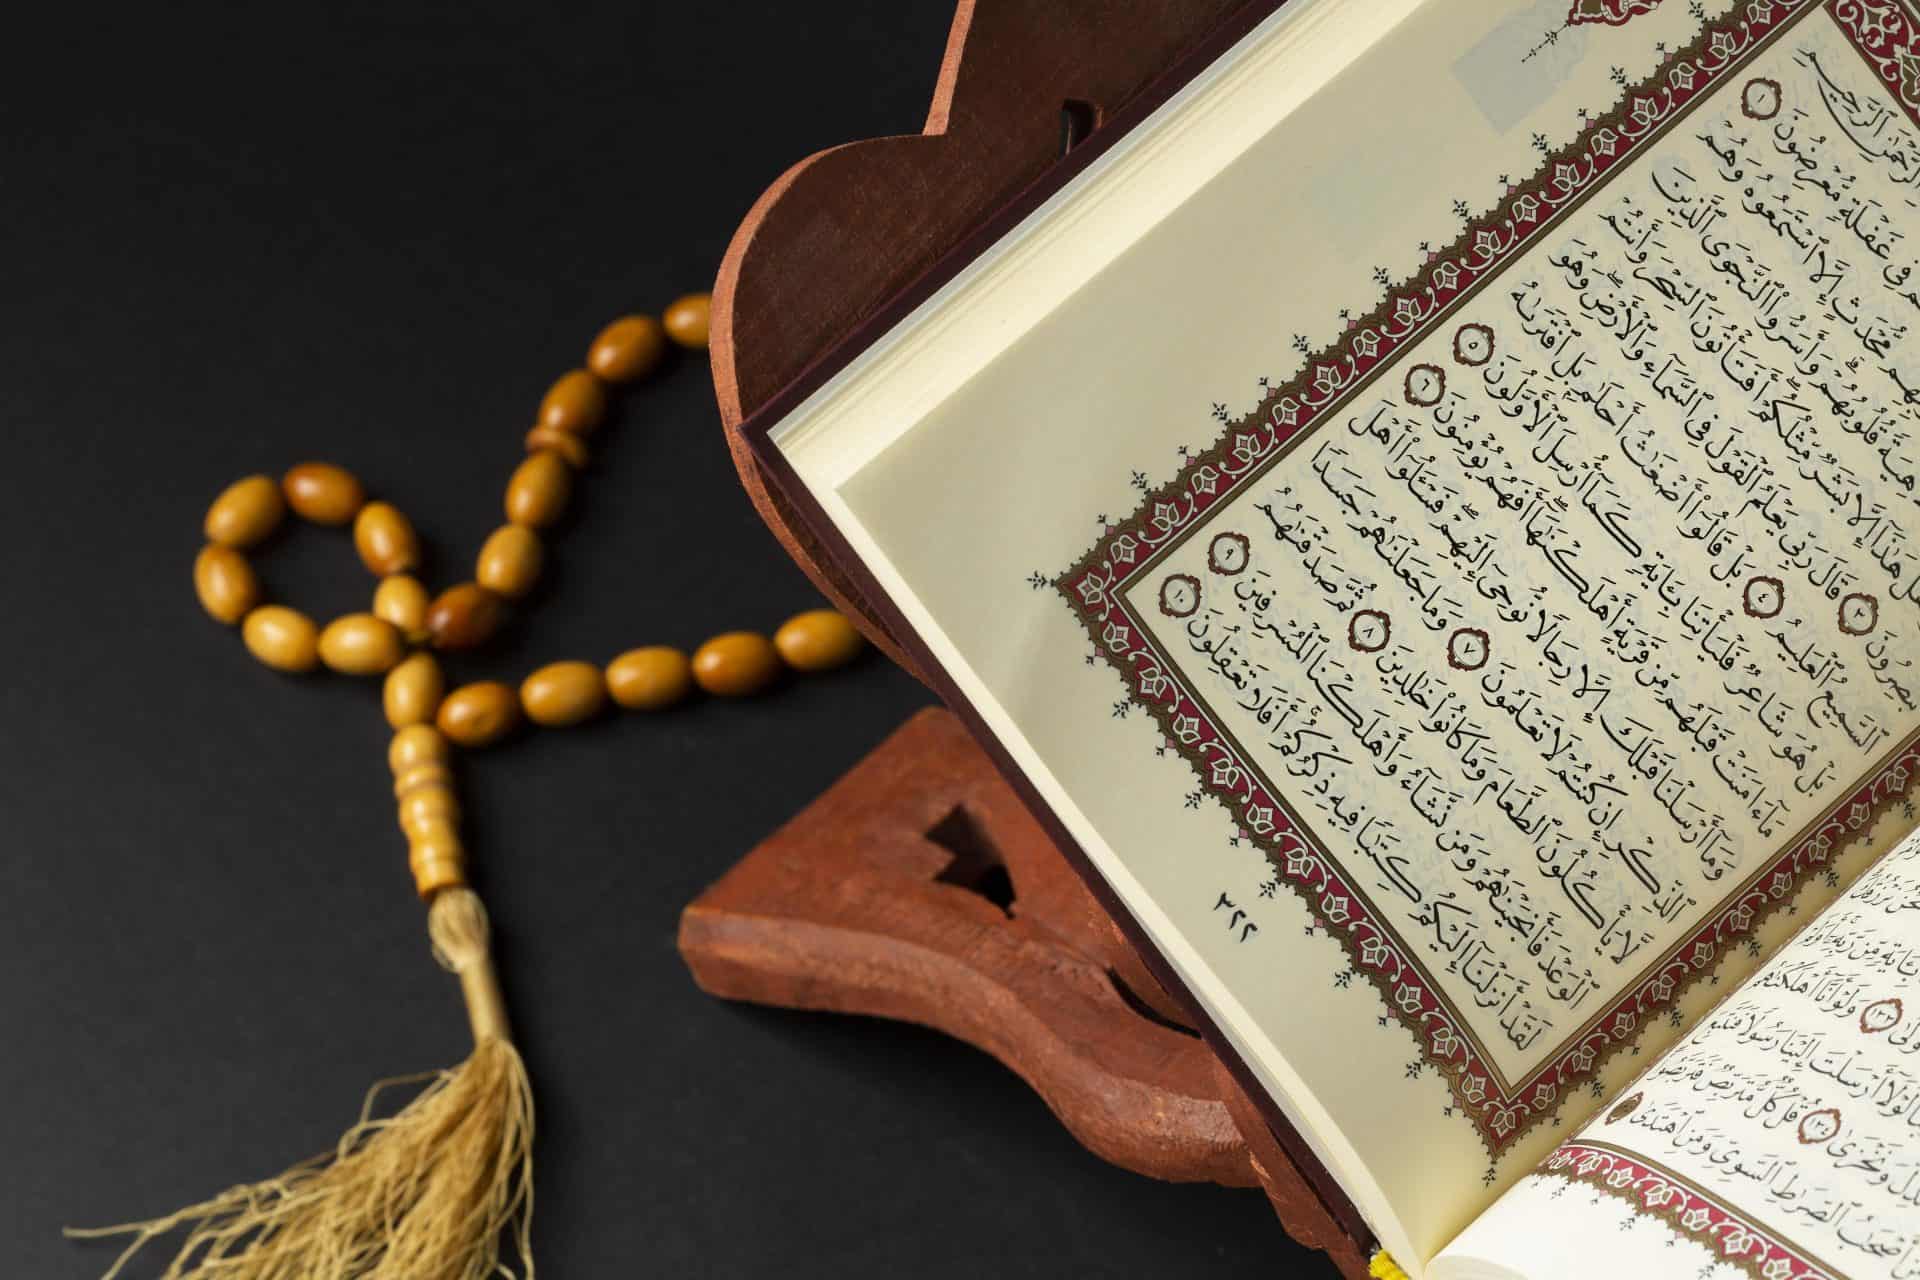 نَّحۡنُ نَرۡزُقُكَۗ
بِـَٔايَةٖ مِّن رَّبِّهِۦٓۚ أَوَلَمۡ
١٣٣ وَلَوۡ أَنَّآ أَهۡلَكۡنَٰهُم
لَوۡلَآ أَرۡسَلۡتَ إِلَيۡنَا رَسُولٗا فَنَتَّبِعَ
وَنَخۡزَىٰ ١٣٤ قُلۡ كُلّٞ مُّتَرَبِّصٞ فَتَرَبَّصُواْۖ
أَصۡحَٰبُ ٱلصِّرَٰطِ ٱلسَّوِيِّ وَمَنِ ٱهۡتَدَىٰ
ٱلرَّحۡمَٰنِ ٱلرَّحِيمِ
فِي غَفۡلَةٖ مُّعۡرِضُونَ ١
مُّحۡدَثٍ إِلَّا ٱسۡتَمَعُوهُ وَهُمۡ
لَاهِيَةٗ قُلُوبُهُمۡۗ وَأَسَرُّواْ ٱلنَّجۡوَى ٱلَّذِينَ
هَلۡ هَٰذَآ إِلَّا بَشَرٞ مِّثۡلُكُمۡۖ أَفَتَأۡتُونَ ٱلسِّحۡرَ وَأَنتُمۡ
تُبۡصِرُونَ ٣ قَالَ رَبِّي يَعۡلَمُ ٱلۡقَوۡلَ فِي ٱلسَّمَآءِ وَٱلۡأَرۡضِۖ وَهُوَ
ٱلسَّمِيعُ ٱلۡعَلِيمُ ٤ بَلۡ قَالُوٓاْ أَضۡغَٰثُ أَحۡلَٰمِۭ بَلِ ٱفۡتَرَىٰهُ
بَلۡ هُوَ شَاعِرٞ فَلۡيَأۡتِنَا بِـَٔايَةٖ كَمَآ أُرۡسِلَ ٱلۡأَوَّلُونَ ٥
مَآ ءَامَنَتۡ قَبۡلَهُم مِّن قَرۡيَةٍ أَهۡلَكۡنَٰهَآۖ أَفَهُمۡ يُؤۡمِنُونَ ٦
وَمَآ أَرۡسَلۡنَا قَبۡلَكَ إِلَّا رِجَالٗا نُّوحِيٓ إِلَيۡهِمۡۖ فَسۡـَٔلُوٓاْ أَهۡلَ
ٱلذِّكۡرِ إِن كُنتُمۡ لَا تَعۡلَمُونَ ٧ وَمَا جَعَلۡنَٰهُمۡ جَسَدٗا
لَّا يَأۡكُلُونَ ٱلطَّعَامَ وَمَا كَانُواْ خَٰلِدِينَ ٨ ثُمَّ صَدَقۡنَٰهُمُ
ٱلۡوَعۡدَ فَأَنجَيۡنَٰهُمۡ وَمَن نَّشَآءُ وَأَهۡلَكۡنَا ٱلۡمُسۡرِفِينَ ٩
لَقَدۡ أَنزَلۡنَآ إِلَيۡكُمۡ كِتَٰبٗا فِيهِ ذِكۡرُكُمۡۚ أَفَلَا تَعۡقِلُونَ ١٠
٣٢٢